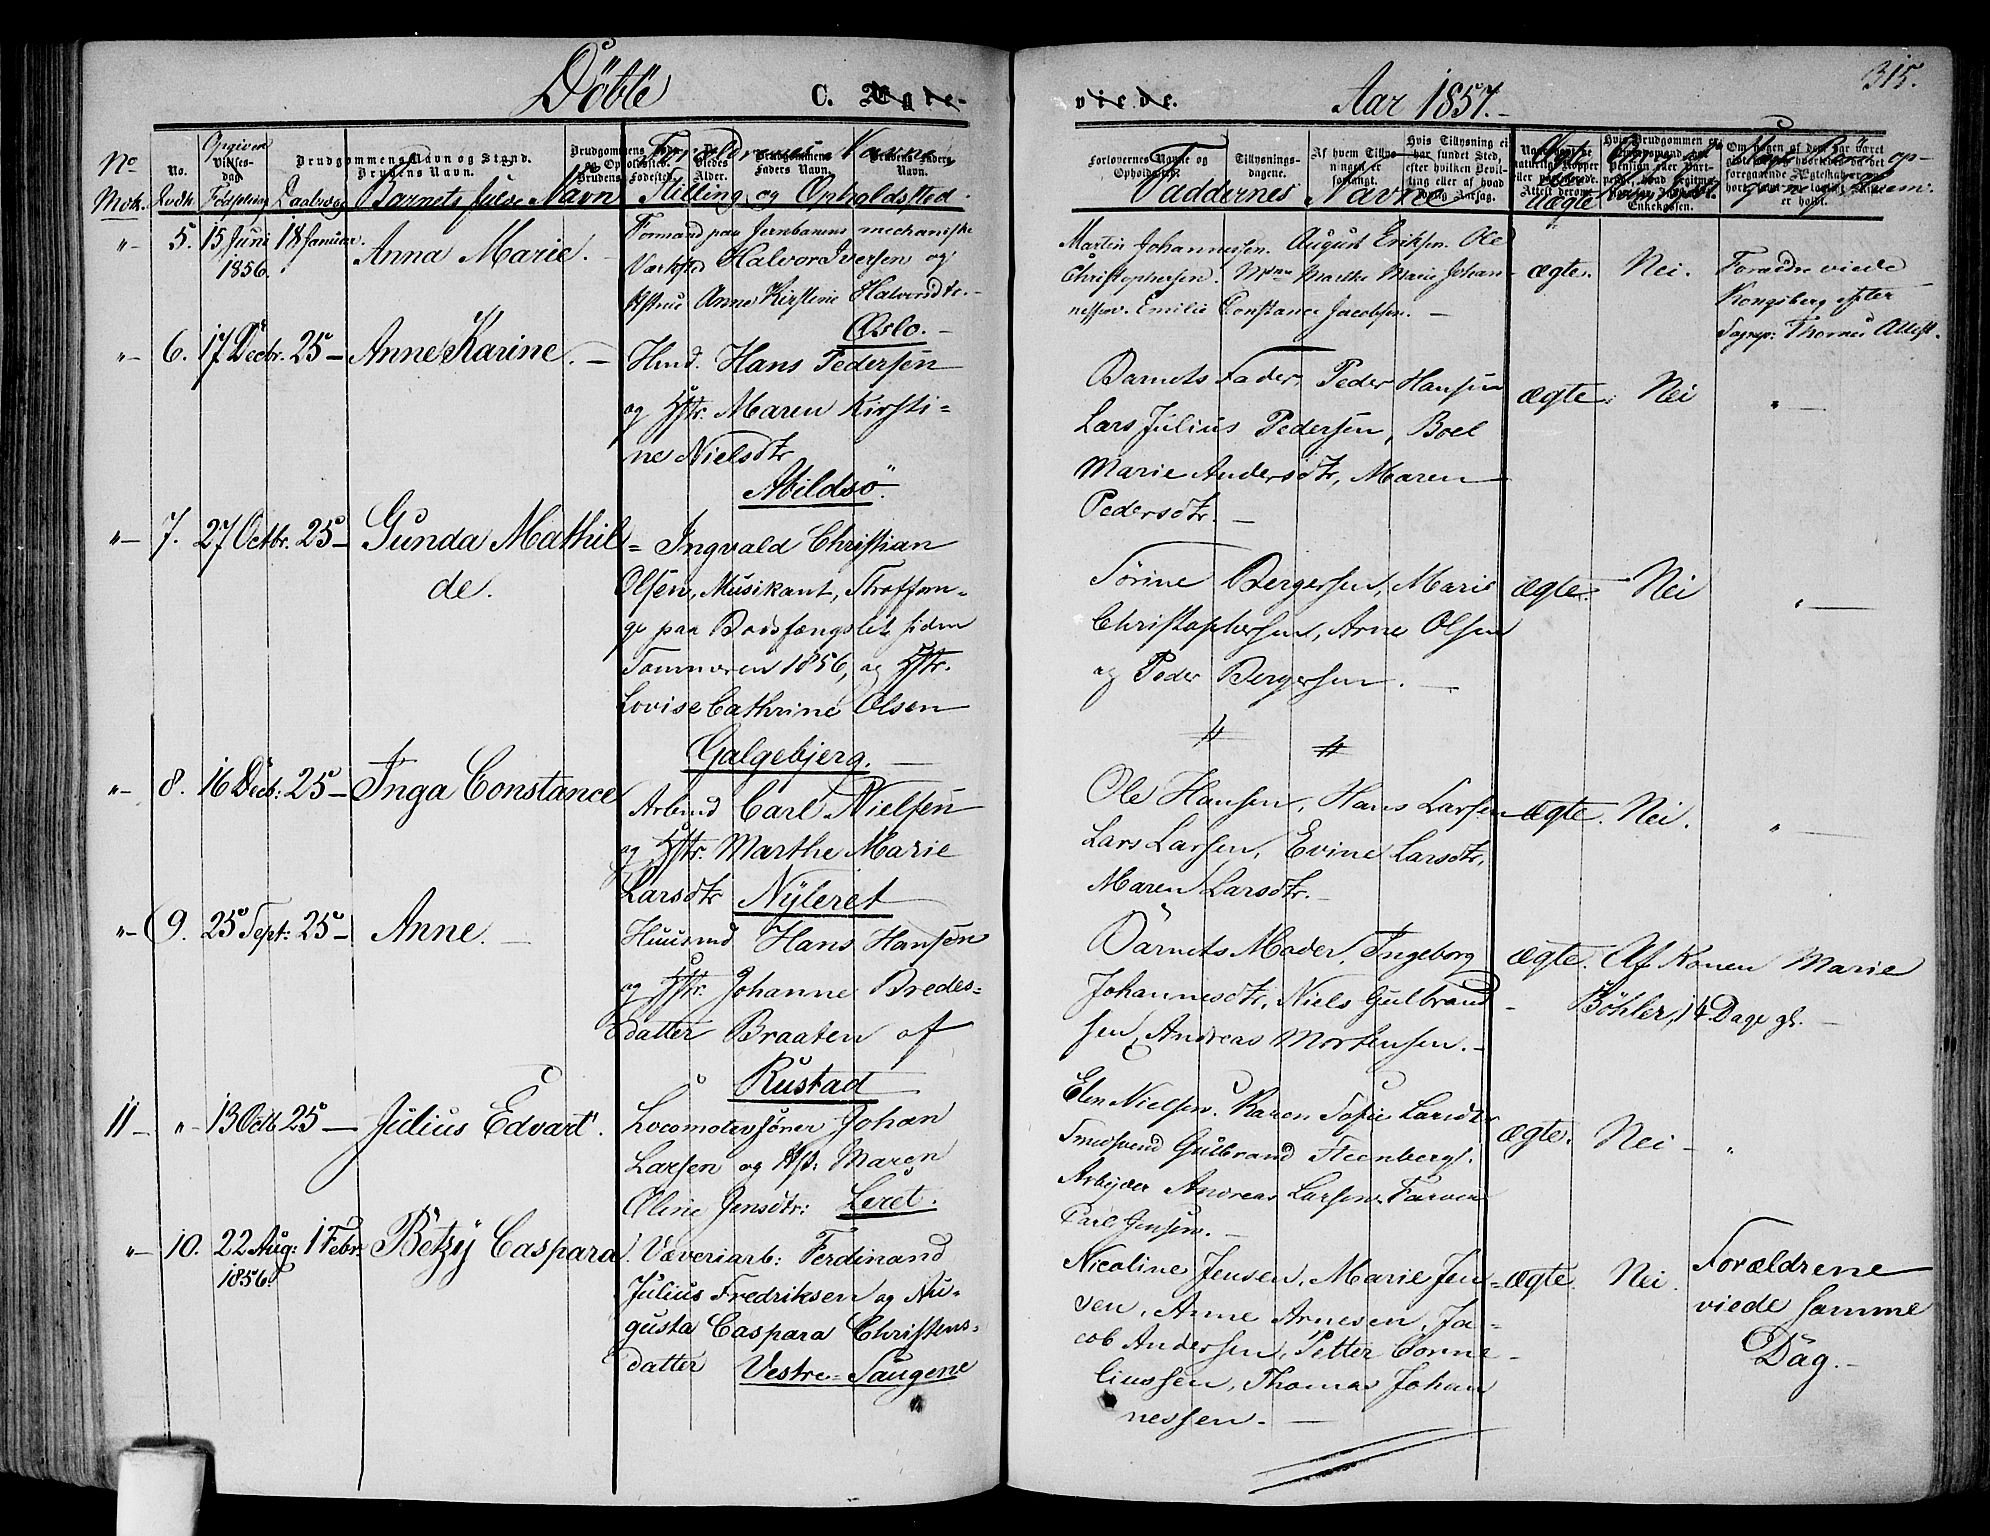 Döbte C. Ægte-
viede. Aar 1857.- 315.
No Mdk. No. Qvdk. Opgiven Vielses-dag Fødselsdag Daabsdag
Brudgommens Navn og Stand. Brudens Navn.
Barnets fulde Navn
Forældrenes Navne
Stilling og Opholdssted
Faddernes Navne
Ægte eller Uægte
"- 5. 15 Juni 1856. 18 Januar. Anna Marie. -
Formand paa Jernbanens mechaniske
Værksted Halvor Iversen og
Hstru Anne Kirstine Halvorsdtr. -
Oslo. -
Martin Johannessen. August Eriksen. Ole
Christophersen. Mdme Marthe Marie Johan-
nessen. Emilie Constance Jacobsen. -
ægte. Nei. Forældre viede
Kongsberg efter
Sognepr: Thornes Attest.
"- 6. 17 Decbr. 25 - Anne Karine. -
Hmd. Hans Pedersen
og Hstr. Maren Kirsti-
ne Nielsdtr
Abildsö.
Barnets Fader, Peder Hansen
Lars Julius Pedersen, Boel
Marie Andersdtr, Maren
Pedersdtr. -
ægte. Nei "-
"- 7. 27 Octbr. 25 - Gunda Mathil=
de.
Ingvald Christian
Olsen, Musikant, Straffan-
ge paa Bodsfængslet siden
Sommeren 1856, og Hstr.
Lovise Cathrine Olsen
Galgebjerg. -
Torine Bergersen, Marie
Christophersen, Arne Olsen
og Peder Bergersen. -
ægte. Nei "-
"- 8. 16 Decb: 25 - Inga Constance
Arbmd Carl Nielsen
og Hstr. Marthe Marie
Larsdtr Nyleret
Ole Hansen, Hans Larsen
Lars Larsen, Evine Larsdtr,
Maren Larsdtr. -
ægte. Nei. "-
"- 9. 25 Sept: 25 - Anne. -
Huusmd Hans Hansen
og Hstr. Johanne Bredes-
datter Braaten af
Rustad
Barnets Moder, Ingeborg
Johannesdtr, Niels Gulbrand-
sen, Andreas Mortensen. -
ægte. Af Konen Marie
Böhler, 14 Dage gl. -
11 - "- 13 Octb 25 - Julius Edvart.
Locomotivförer Johan
Larsen og Hst: Maren
Oline Jensdtr: Leret.
Elen Nielsen. Karen Sofie Larsdtr
Smedsvend Gulbrand Steenberg.
Arbejder Andreas Larsen. Farver
Carl Jensen. -
ægte. Nei - "
"- 10. 22 Aug: 1856. 1 Febr. Betzy Caspara.
Væveriarb: Ferdinand
Julius Fredriksen og Au-
gusta Caspara Christens-
datter Vestre-Saugene
Nicoline Jensen, Marie Jen-
sen, Anne Arnesen, Ja-
cob Andersen, Petter Corne-
liussen, Thomas Johan
nessen. -
ægte. Nei. Forældrene
viede samme
Dag. -